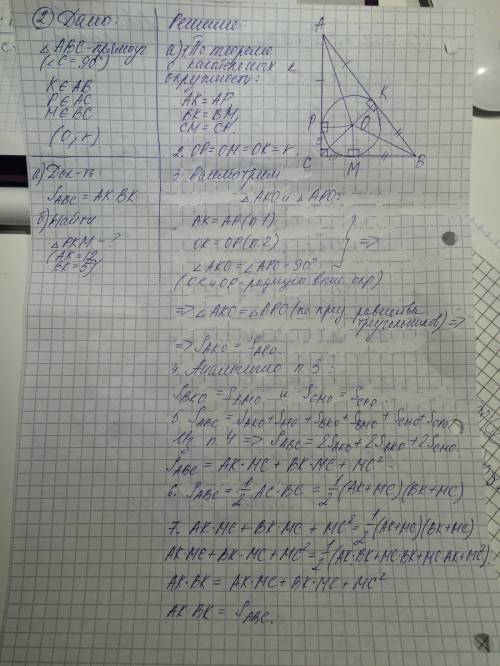 ② Дано:
△ABC - прямоуг
(∠C = 90°)
K∈AB
P∈AC
M∈BC
(O; r)
а) Док-ть:
S_ABC = AK·BK
б) Найти
△PKM - ?
(AK = 12
BK = 5)
Решение:
а) 1. По теореме
о касательных к
окружности:
AK = AP,
BK = BM,
CM = CP.
2. OP = OM = OK = r.
3. Рассмотрим
△AKO и △APO:
AK = AP (п.1)
OK = OP (п.2) } ⇒
∠AKO = ∠APO = 90°
(OK и OP - радиусы впис. окр)
⇒ △AKO = △APO (по приз равенства
треугольников) ⇒
⇒ S_AKO = S_APO.
4. Аналогично п. 3:
S_BKO = S_BMO и S_CMO = S_CPO.
5. S_ABC = S_AKO + S_APO + S_BKO + S_BMO + S_CMO + S_CPO
Из п. 4 ⇒ S_ABC = 2S_AKO + 2S_BKO + 2S_CMO
S_ABC = AK·MC + BK·MC + MC²
6. S_ABC = 1/2 AC·BC = 1/2 (AK+MC)(BK+MC)
7. AK·MC + BK·MC + MC² = 1/2 (AK+MC)(BK+MC)
AK·MC + BK·MC + MC² = 1/2 (AK·BK + MC·BK + MC·AK + MC²)
AK·BK = AK·MC + BK·MC + MC²
AK·BK = S_ABC.
A
K
P
O
C
M
B